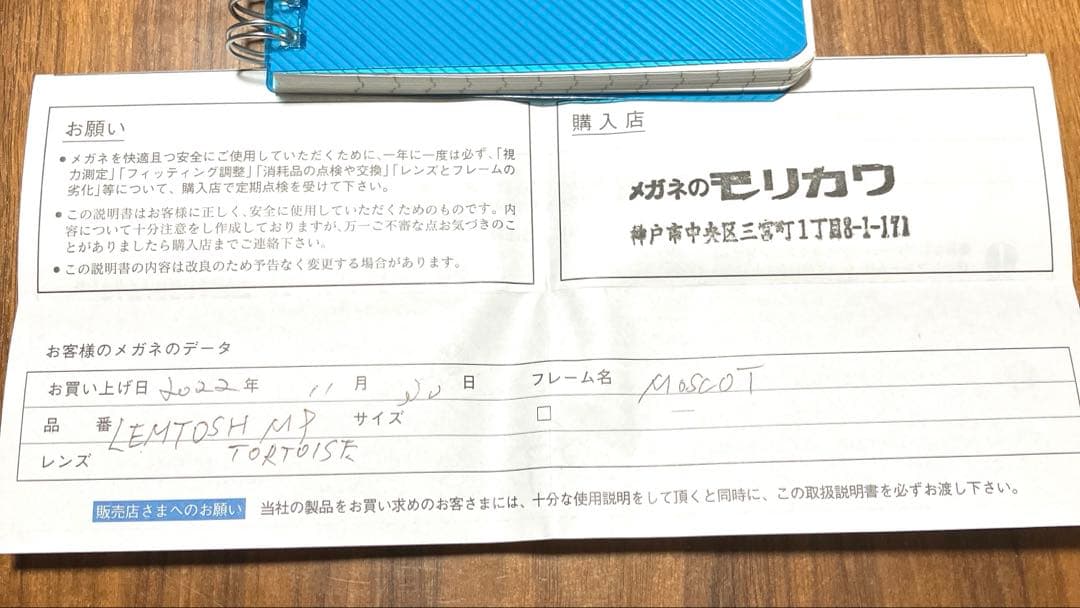 お願い
● メガネを快適且つ安全にご使用していただくために、一年に一度は必ず、「視
力測定」「フィッティング調整」「消耗品の点検や交換」「レンズとフレームの
劣化」等について、購入店で定期点検を受けて下さい。
● この説明書はお客様に正しく、安全に使用していただくためのものです。内
容について十分注意をし作成しておりますが、万一ご不審な点お気づきのこ
とがありましたら購入店までご連絡下さい。
● この説明書の内容は改良のため予告なく変更する場合があります。
購入店
メガネのモリカワ
神戸市中央区三宮町1丁目8-1-171
お客様のメガネのデータ
お買い上げ日 2022年 11月 日 フレーム名 MOSCOT
品番 LEMTOSH MP サイズ □
TORTOISE
レンズ
販売店さまへのお願い 当社の製品をお買い求めのお客さまには、十分な使用説明をして頂くと同時に、この取扱説明書を必ずお渡し下さい。